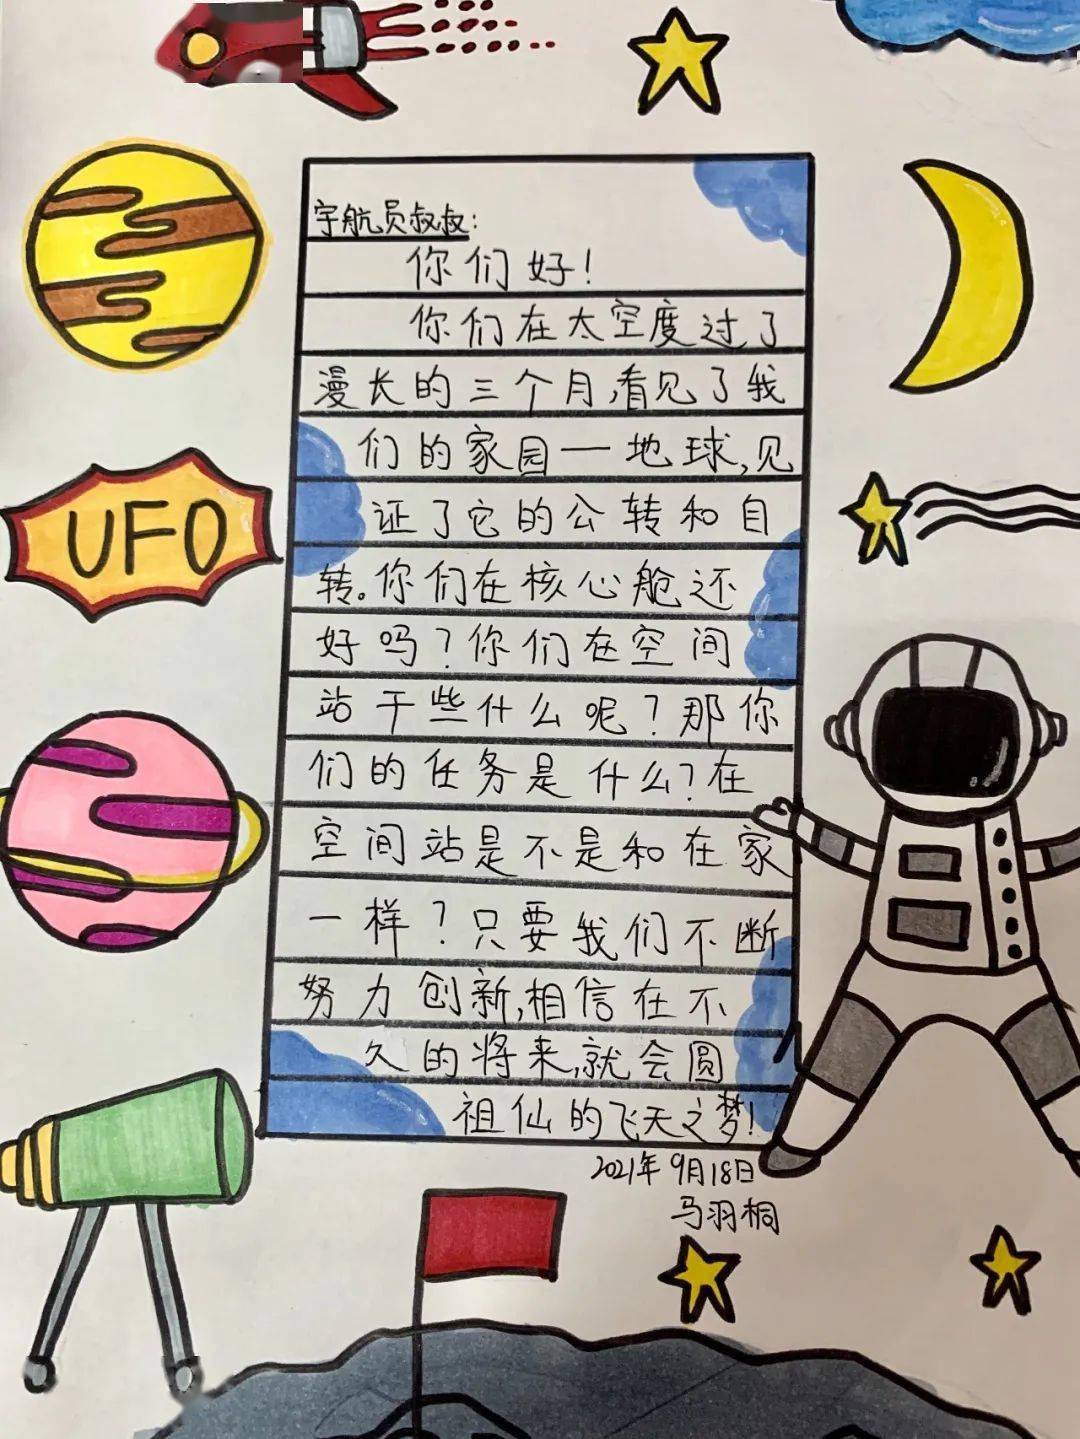 宇航员叔叔:
你们好!
你们在太空度过了
漫长的三个月,看见了我
们的家园一地球,见
证了它的公转和自
转。你们在核心舱还
好吗?你们在空间
站干些什么呢?那你
们的任务是什么?在
空间站是不是和在家
一样?只要我们不断
努力创新,相信在不
久的将来,就会圆
祖仙的飞天之梦!
2021年9月18日
马羽桐
UFO